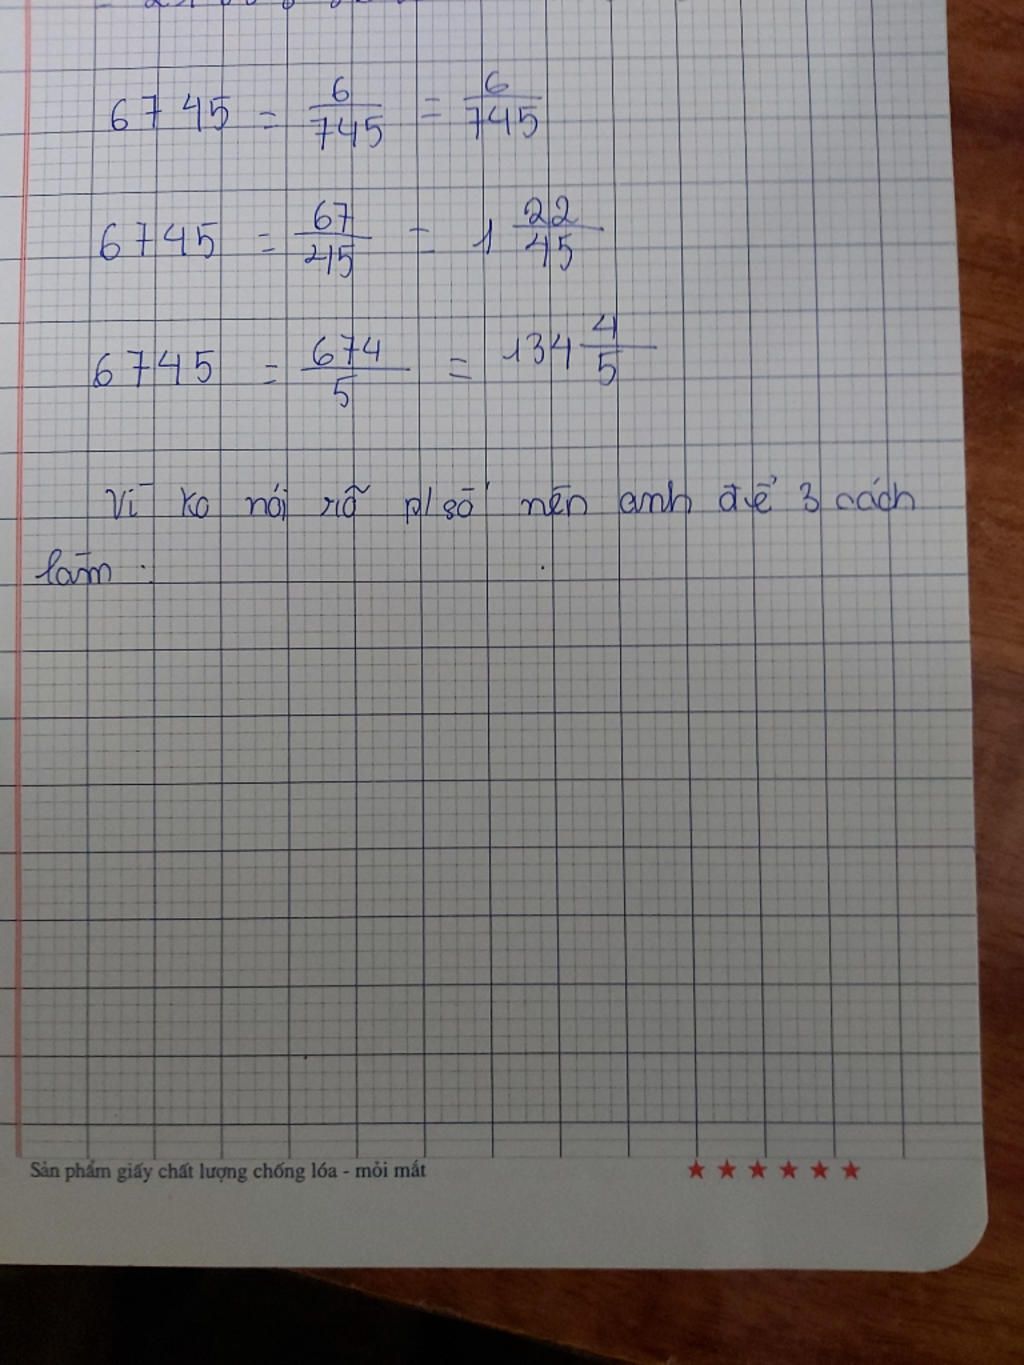 6745 = 6/745 = 6/745
6745 = 67/45 = 1 22/45
6745 = 674/5 = 134 4/5
Vì ko nói rõ p/số nên anh để 3 cách
làm.
Sản phẩm giấy chất lượng chống lóa - mỏi mắt